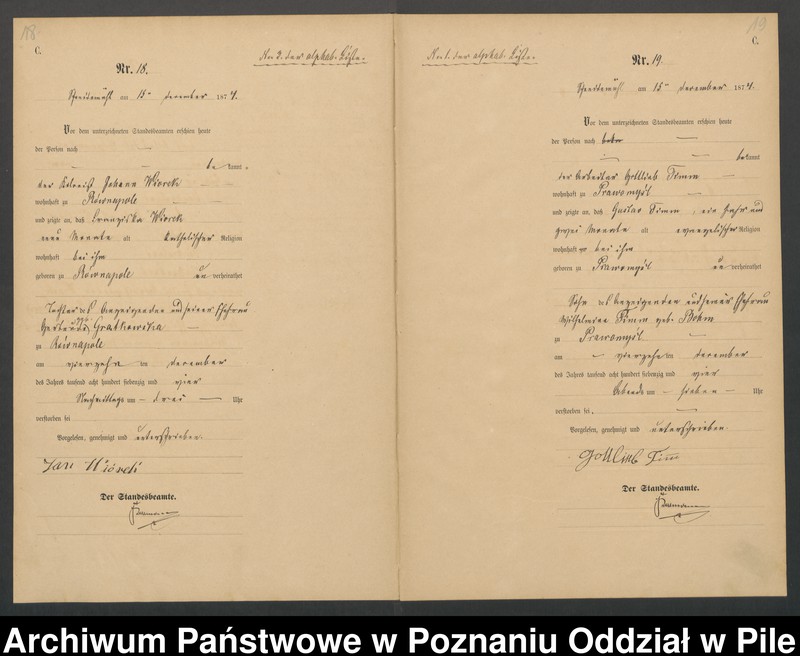 18
C.
Nr. 18.
No 2. der alphab. Liste.
am 15ten December 1874.
Vor dem unterzeichneten Standesbeamten erschien heute
der Person nach —
— — bekannt,
der Johann Wiorek
wohnhaft zu Równapole
und zeigte an, daß Franziska Wiorek
neun Monate alt katholischer Religion
wohnhaft bei ihm
geboren zu Równapole unverheirathet
Tochter des Anzeigenden und seiner Ehefrau
geb. Gratkowska —
zu Równapole
am vierzehn ten December
des Jahres tausend acht hundert siebenzig und vier
Nachmittags um — drei — Uhr
verstorben sei
Vorgelesen, genehmigt und unterschrieben.
Jan Wiórek
Der Standesbeamte.
19
C.
Nr. 19.
No 1. der alphab. Liste.
am 15ten December 1874.
Vor dem unterzeichneten Standesbeamten erschien heute
der Person nach —
— — bekannt
der Arbeiter Gottlieb Timm —
wohnhaft zu Prawomysl —
und zeigte an, daß Gustav Timm, ein Jahr und
zwei Monate alt evangelischer Religion
wohnhaft bei ihm
geboren zu Prawomysl unverheirathet
Sohn des Anzeigenden und seiner Ehefrau
Wilhelmine Timm geb. Böhm
zu Prawomysl —
am — vierzehn ten December
des Jahres tausend acht hundert siebenzig und vier
Abends um — sieben — Uhr
verstorben sei. —
Vorgelesen, genehmigt und unterschrieben.
Gottlieb Timm
Der Standesbeamte.
Archiwum Państwowe w Poznaniu Oddział w Pile